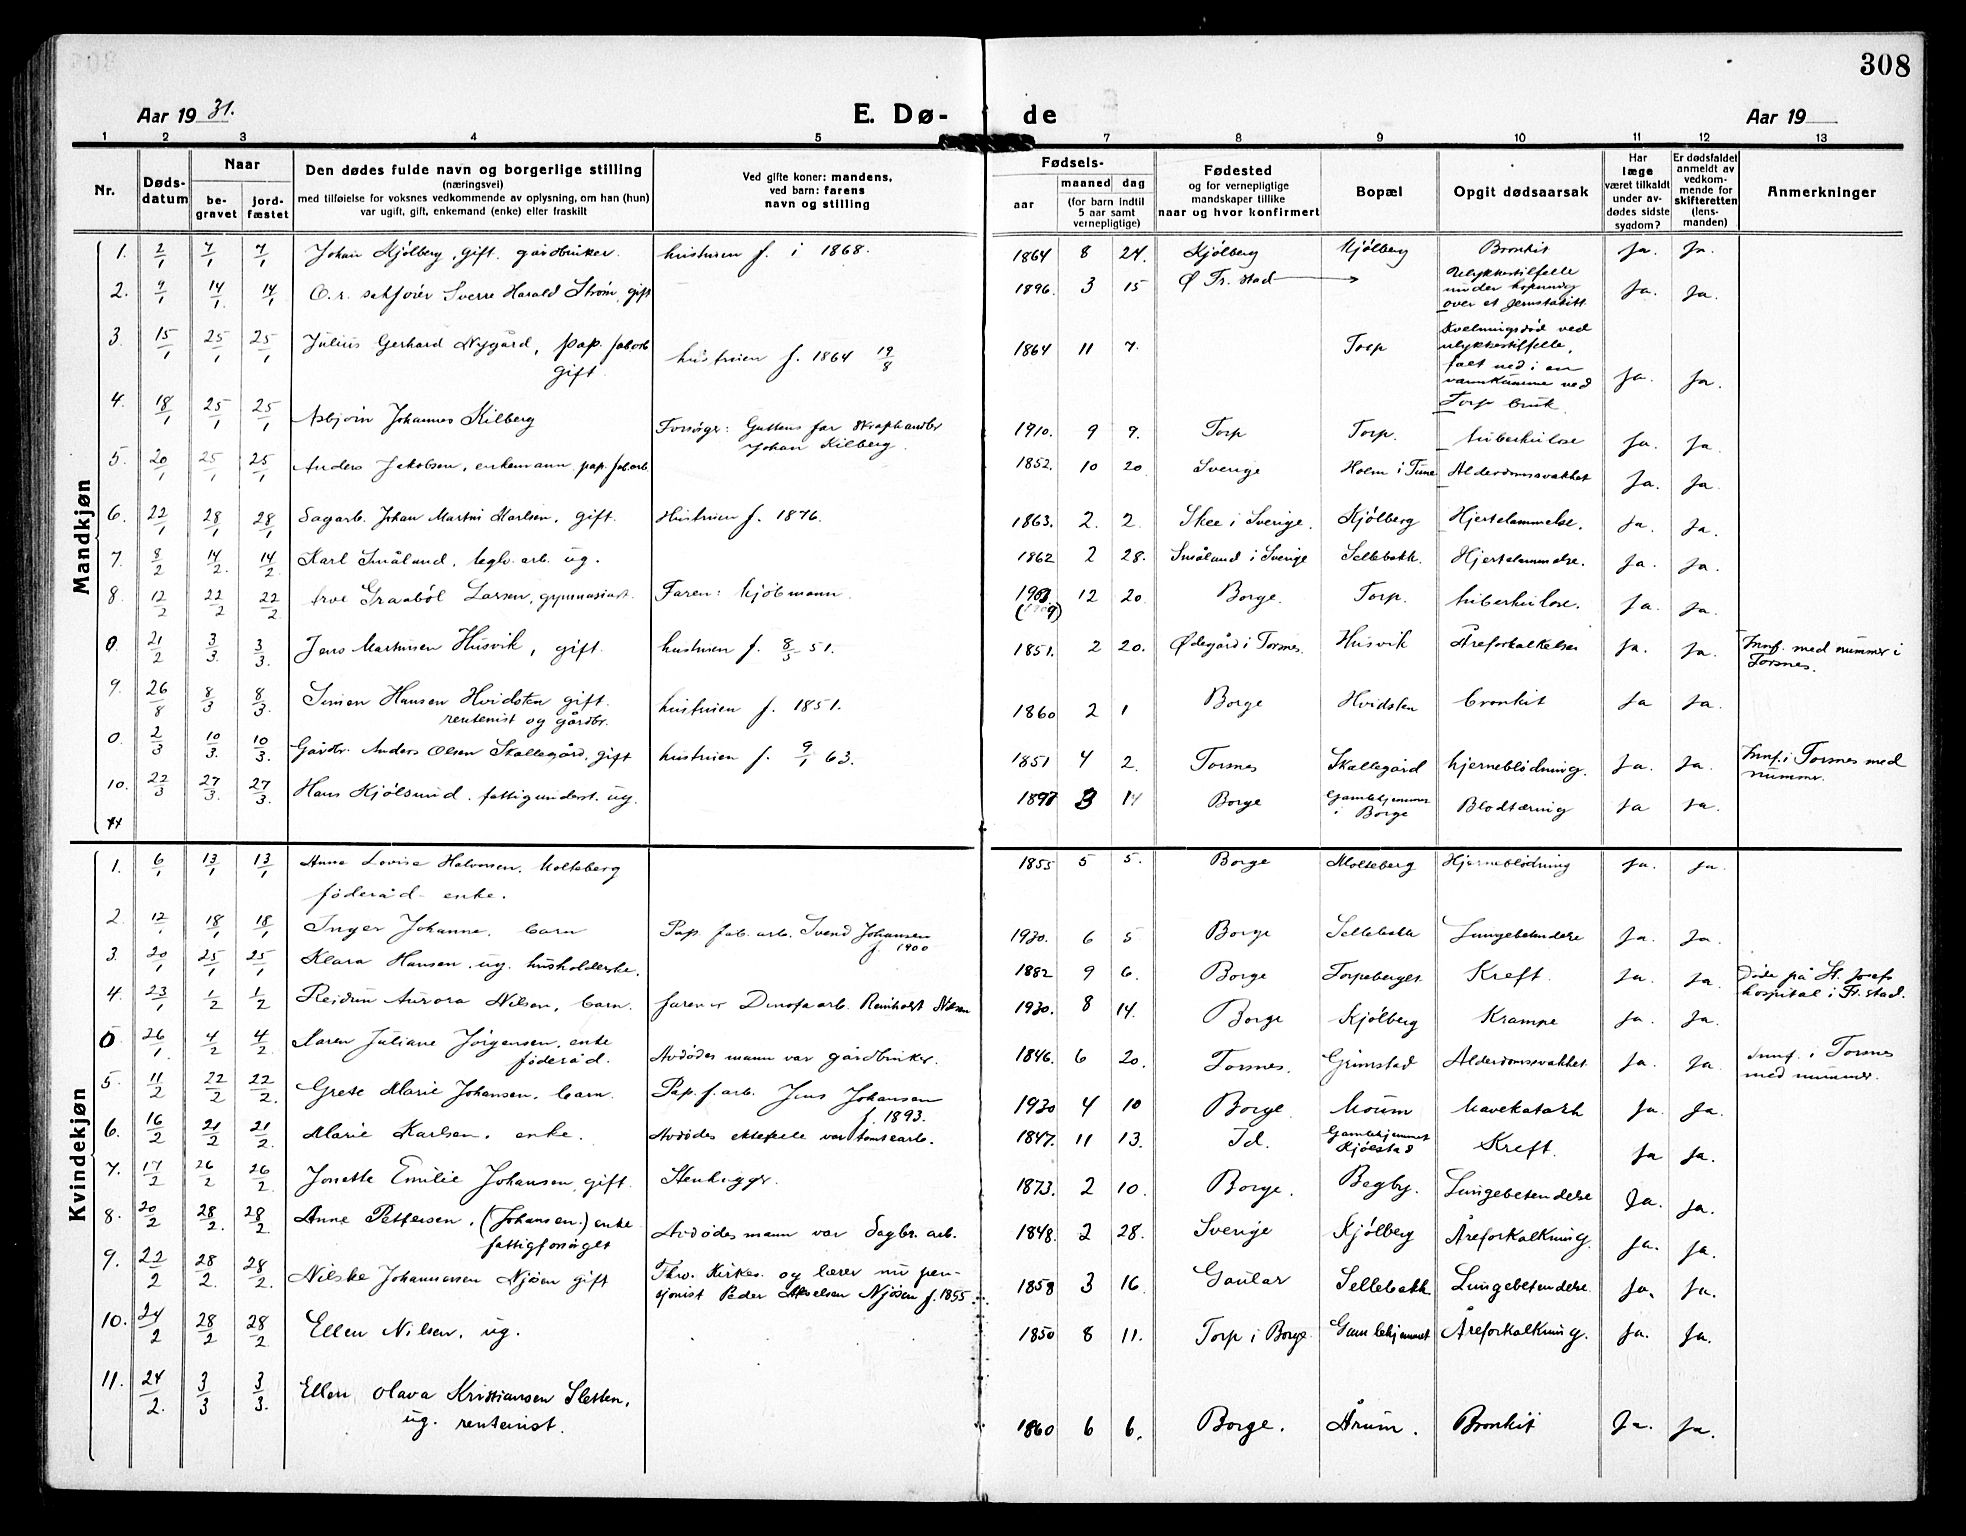 308
Aar 1931.
E. Dø-
de
Aar 19
1 2 3 4 5 7 8 9 10 11 12 13
Nr.
Døds-
datum
Naar
be-
gravet
jord-
fæstet
Den dødes fulde navn og borgerlige stilling
(næringsvei)
med tilføielse for voksnes vedkommende av oplysning, om han (hun)
var ugift, gift, enkemand (enke) eller fraskilt
Ved gifte koner: mandens,
ved barn: farens
navn og stilling
Fødsels-
aar
maaned dag
(for barn indtil
5 aar samt
vernepligtige)
Fødested
og for vernepligtige
mandskaper tillike
naar og hvor konfirmert
Bopæl
Opgit dødsaarsak
Har
læge
været tilkaldt
under av-
dødes sidste
sygdom?
Er dødsfaldet
anmeldt av
vedkom-
mende for
skifteretten
(lens-
manden)
Anmerkninger
Mandkjøn
1. 2/1 7/1 7/1 Johan Kjølberg, gift. gårdbruker. hustruen f. i 1868. 1864 8 24. Kjølberg Kjølberg Bronkit Ja. Ja.
2. 9/1 14/1 14/1 O.r. sakfører Sverre Harald Strøm, gift 1896. 3 15 Ø Fr. stad Ulykkestilfelle
under hopning
over et jernstakitt Ja. Ja.
3. 15/1 25/1 25/1 Julius Gerhard Nygård, pap. fabarb
gift. hustruen f. 1864 19/8 1864 11 7. Torp Kvelningsdød ved
ulykkestilfelle,
falt ned i en
vannkumme ved
Torp bruk. Ja. Ja.
4. 18/1 25/1 25/1 Asbjørn Johannes Kilberg Forsøger: Guttens far Skraphandler
Johan Kilberg. 1910. 9 9. Torp Torp. tuberkulose Ja. Ja.
5. 20/1 25/1 25/1 Anders Jakobsen, enkemann, pap. fabarb 1852. 10 20. Sverige Holm i Tune Alderdomssvakhet Ja. Ja.
6. 22/1 28/1 28/1 Sagarb. Johan Martin Karlsen, gift. Hustruen f. 1876. 1863. 2. 2. Skee i Sverige. Kjølberg Hjertelammelse. Ja. Ja.
7. 8/2 14/2. 14/2 Karl Småland, teglv. arb. ug. 1862 2 28. Småland i Sverige Sellebakk. Hjertelammelse. Ja. Ja.
8. 12/2 22/2 22/2 Arve Graabøl Larsen, gymnasiast. Faren: kjøbmann. (1909) 12 20. Borge. Torp. tuberkulose. Ja. Ja.
0 21/2 3/3. 3/3. Jens Martinsen Husvik, gift. hustruen f. 8/3 51. 1851. 2 20. Ødegård i Torsnes. Husvik Åreforkalkelse Ja. Ja. Innf. med nummer i
Torsnes.
9. 26/8 8/3 8/3. Simen Hansen Hvidsten gift.
rentenist og gårdbr. hustruen f. 1851. 1860 2 1 Borge Hvidsten bronkit Ja Ja.
0. 2/3 10/3. 10/3. Gårdbr. Anders Olsen Skallegård, gift hustruen f. 9/1 63. 1851 4 2. Torsnes Skallegård hjerneblødning. Ja. Ja. Innf. i Torsnes med
nummer.
10. 22/3 27/3. 27/3. Hans Kjølsund. fattigunderst. ug. 1897 3 14 Borge Gamlehjemmet
i Borge Blodtæring Ja Ja.
Kvindekjøn
1. 6/1 13/1 13/1 Anna Lovise Halvorsen. Molteberg
føderåd- enke. 1855 5 5. Borge Molteberg Hjerneblødning Ja. Ja.
2. 12/1 18/1 18/1 Inger Johanne. barn Pap. fab. arb. Svend Johansen
f. 1900 1930. 6 5 Borge Sellebakk Lungebetendelse Ja. Ja.
3. 20/1 25/1 25/1 Klara Hansen. ug. husholderske. 1882 9 6. Borge Torpeberget Kreft. Ja. Ja. Døde på St. Josefs
hospital i Fr.stad.
4. 23/1 1/2 1/2 Reidun Aurora Nilsen, barn. faren er Denofaarb. Reinholdt Nilsen 1930. 8 14. Borge Kjølberg Krampe Ja. Ja.
0 26/1 4/2 4/2 Karen Juliane Jörgensen. enke
föderåd. Avdødes mann var gårdbruker. 1846. 6 20. Torsnes. Grimstad Alderdomssvakhet Ja. Ja. Innf. i Torsnes
med nummer.
5. 11/2 22/2 22/2. Grete Marie Johansen, barn. Pap. f. arb. Jens Johansen
f. 1893. 1930 4 10 Borge Moum Mavekatarh Ja. Ja.
6. 16/2 21/2 21/2. Marie Karlsen. enke. Avdødes ektefelle var tomtearb. 1847. 11 13. Id. Gamlehjemmet
Kjølstad Kreft. Ja Ja.
7. 17/2 26/2 26/2 Jonette Emilie Johansen, gift. Stenhugger. 1873. 2 10. Borge. Begby. Lungebetendelse Ja. Ja.
8. 20/2 28/2. 28/2 Anne Pettersen. (Johansen.) enke
fattigforsørget Avdødes mann var Sagbr. arb. 1848. 2 28. Sverige Kjølberg Åreforkalkning. Ja. Ja.
9. 22/2 28/2. 28/2. Nilske Johannesen Njøsen gift Fhv. Kirkes. og lærer nu pen-
sjonist Peder Akselsen Njøsen f. 1855. 1858 3 16. Gaular Sellebakk Lungebetendelse Ja. Ja.
10. 24/2 28/2 28/2 Ellen Nilsen, ug. 1850 8 11. Torp i Borge Gamlehjemmet Åreforkalkning. Ja. Ja.
11. 24/2. 3/3 3/3. Ellen Olava Kristiansen Sletten.
ug. rentenist. 1860 6 6. Borge. Årum. Bronkit Ja. Ja.